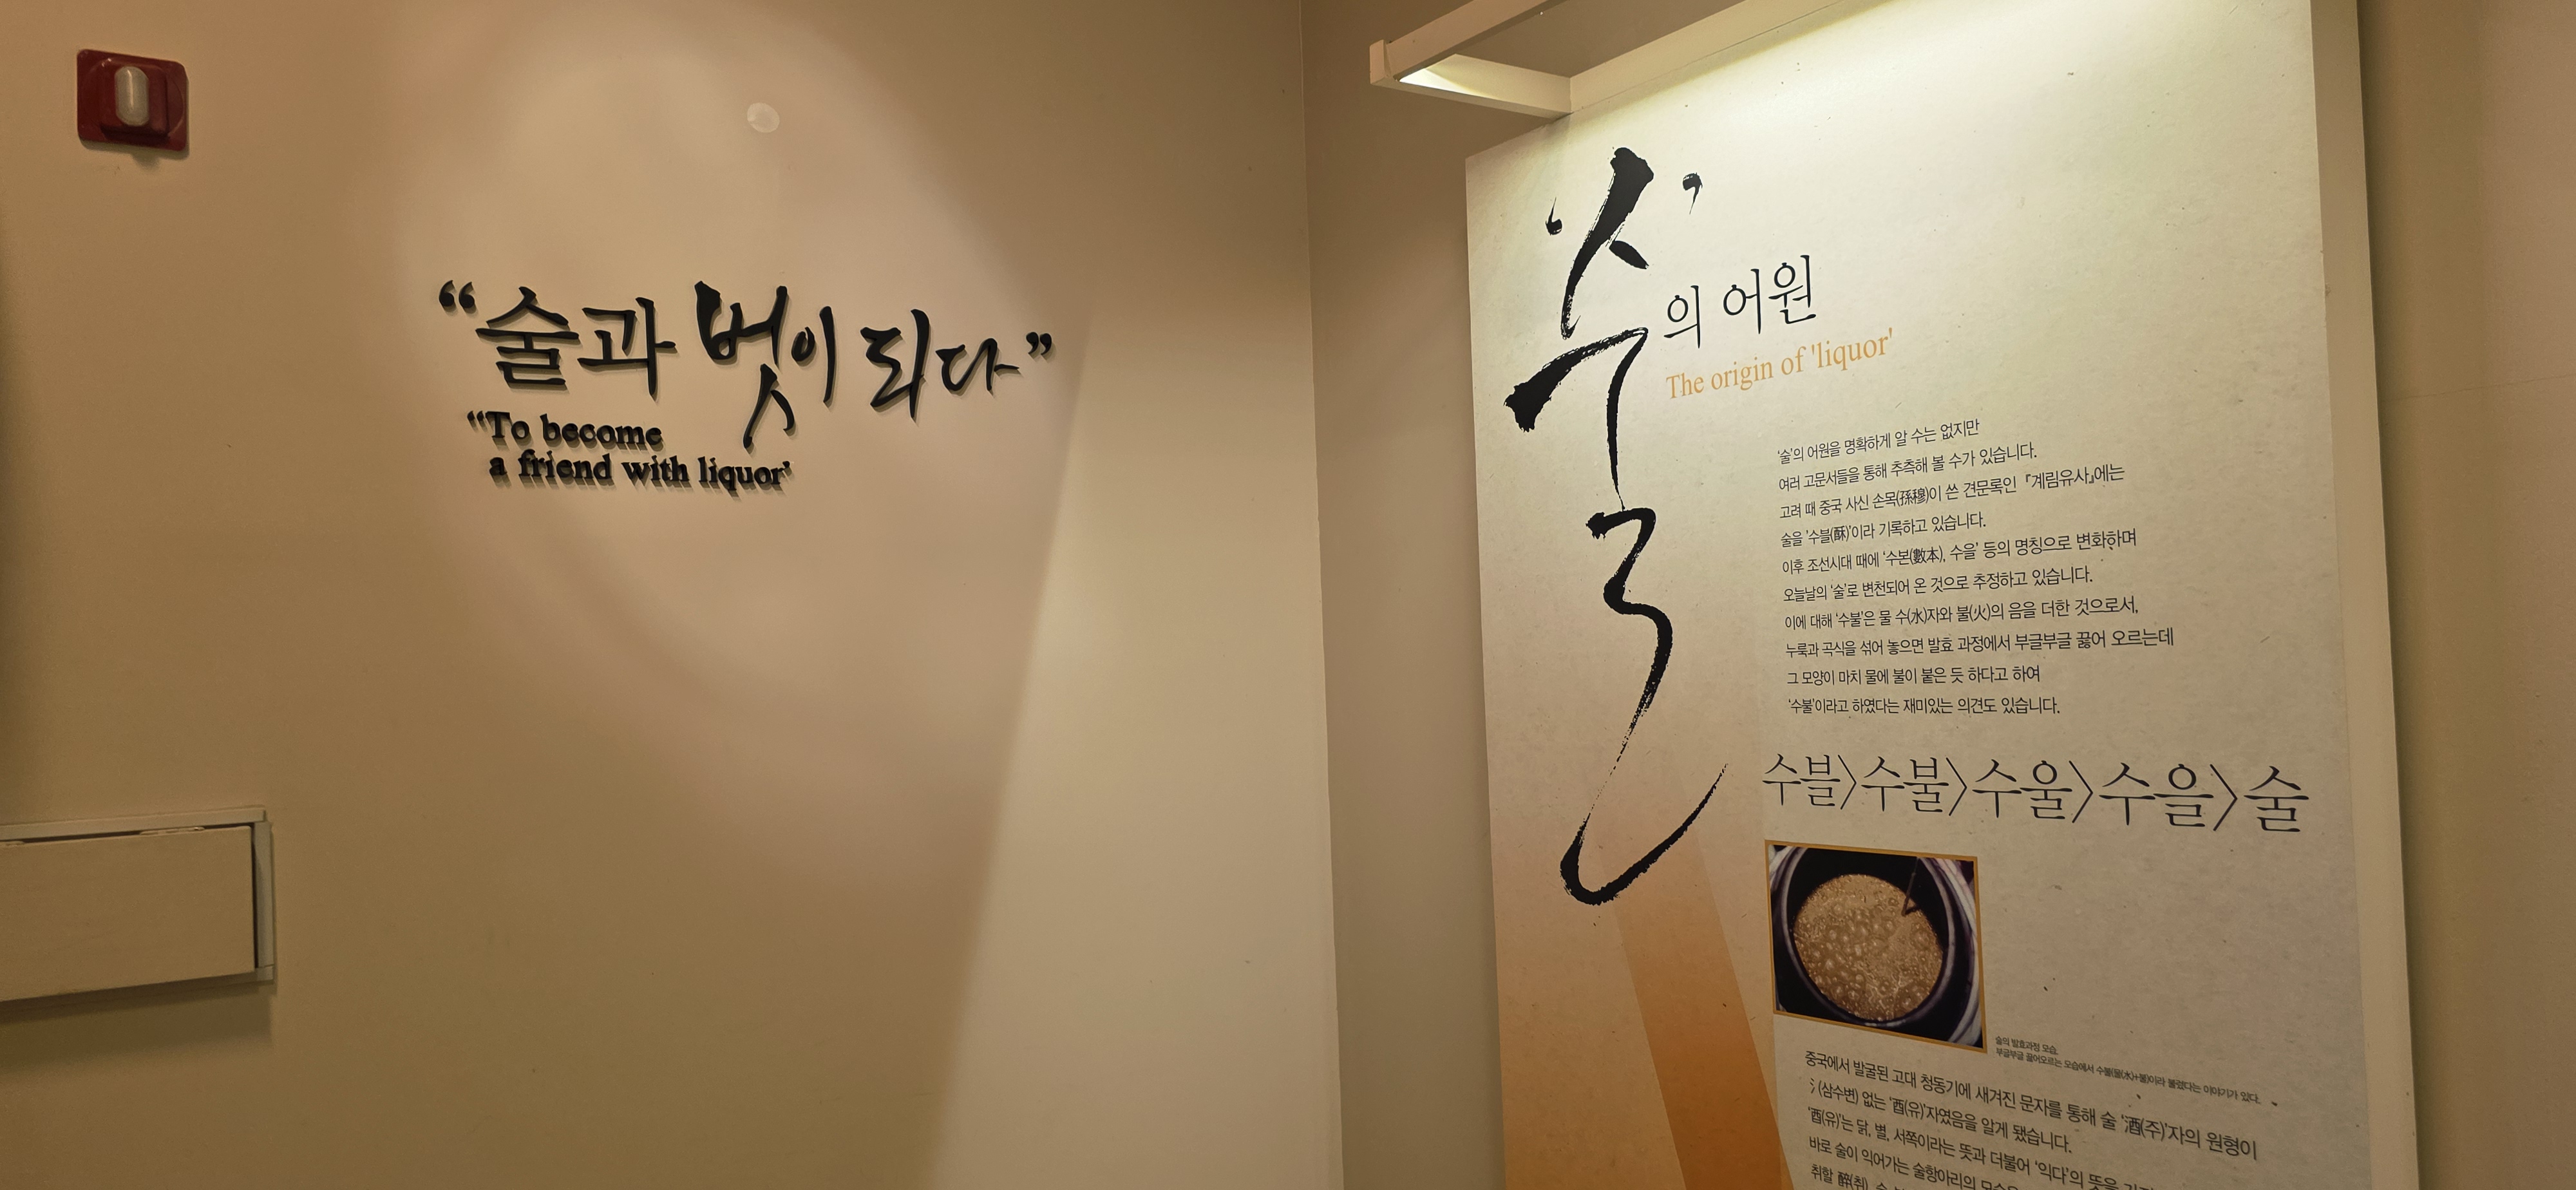 “술과 벗이 되다”
“To become
a friend with liquor’
‘술’의 어원
The origin of 'liquor'
‘술’의 어원을 명확하게 알 수는 없지만
여러 고문서들을 통해 추측해 볼 수가 있습니다.
고려 때 중국 사신 손목(孫穆)이 쓴 견문록인 『계림유사』에는
술을 ‘수블(酥)’이라 기록하고 있습니다.
이후 조선시대 때에 ‘수본(數本), 수을’ 등의 명칭으로 변화하며
오늘날의 ‘술’로 변천되어 온 것으로 추정하고 있습니다.
이에 대해 ‘수불’은 물 수(水)자와 불(火)의 음을 더한 것으로서,
누룩과 곡식을 섞어 놓으면 발효 과정에서 부글부글 끓어 오르는데
그 모양이 마치 물에 불이 붙은 듯 하다고 하여
‘수불’이라고 하였다는 재미있는 의견도 있습니다.
수블〉수불〉수울〉수을〉술
술의 발효과정 모습.
부글부글 끓어오르는 모습에서 수불(물(水)+불)이라 불렀다는 이야기가 있다.
중국에서 발굴된 고대 청동기에 새겨진 문자를 통해 술 ‘酒(주)’자의 원형이
氵(삼수변) 없는 ‘酉(유)’자였음을 알게 됐습니다.
‘酉(유)’는 닭, 별, 서쪽이라는 뜻과 더불어 ‘익다’의 뜻을
바로 술이 익어가는 술항아리의
취할 醉(취),